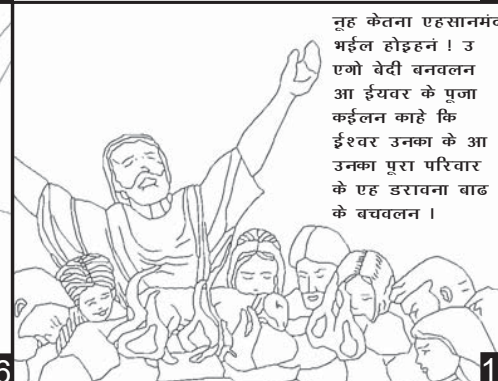 नूह केतना एहसानमंद
भईल होइहनं ! उ
एगो बेदी बनवलन
आ ईयवर के पूजा
कईलन काहे कि
ईश्वर उनका के आ
उनका पूरा परिवार
के एह डरावना बाढ
के बचवलन ।
6
1